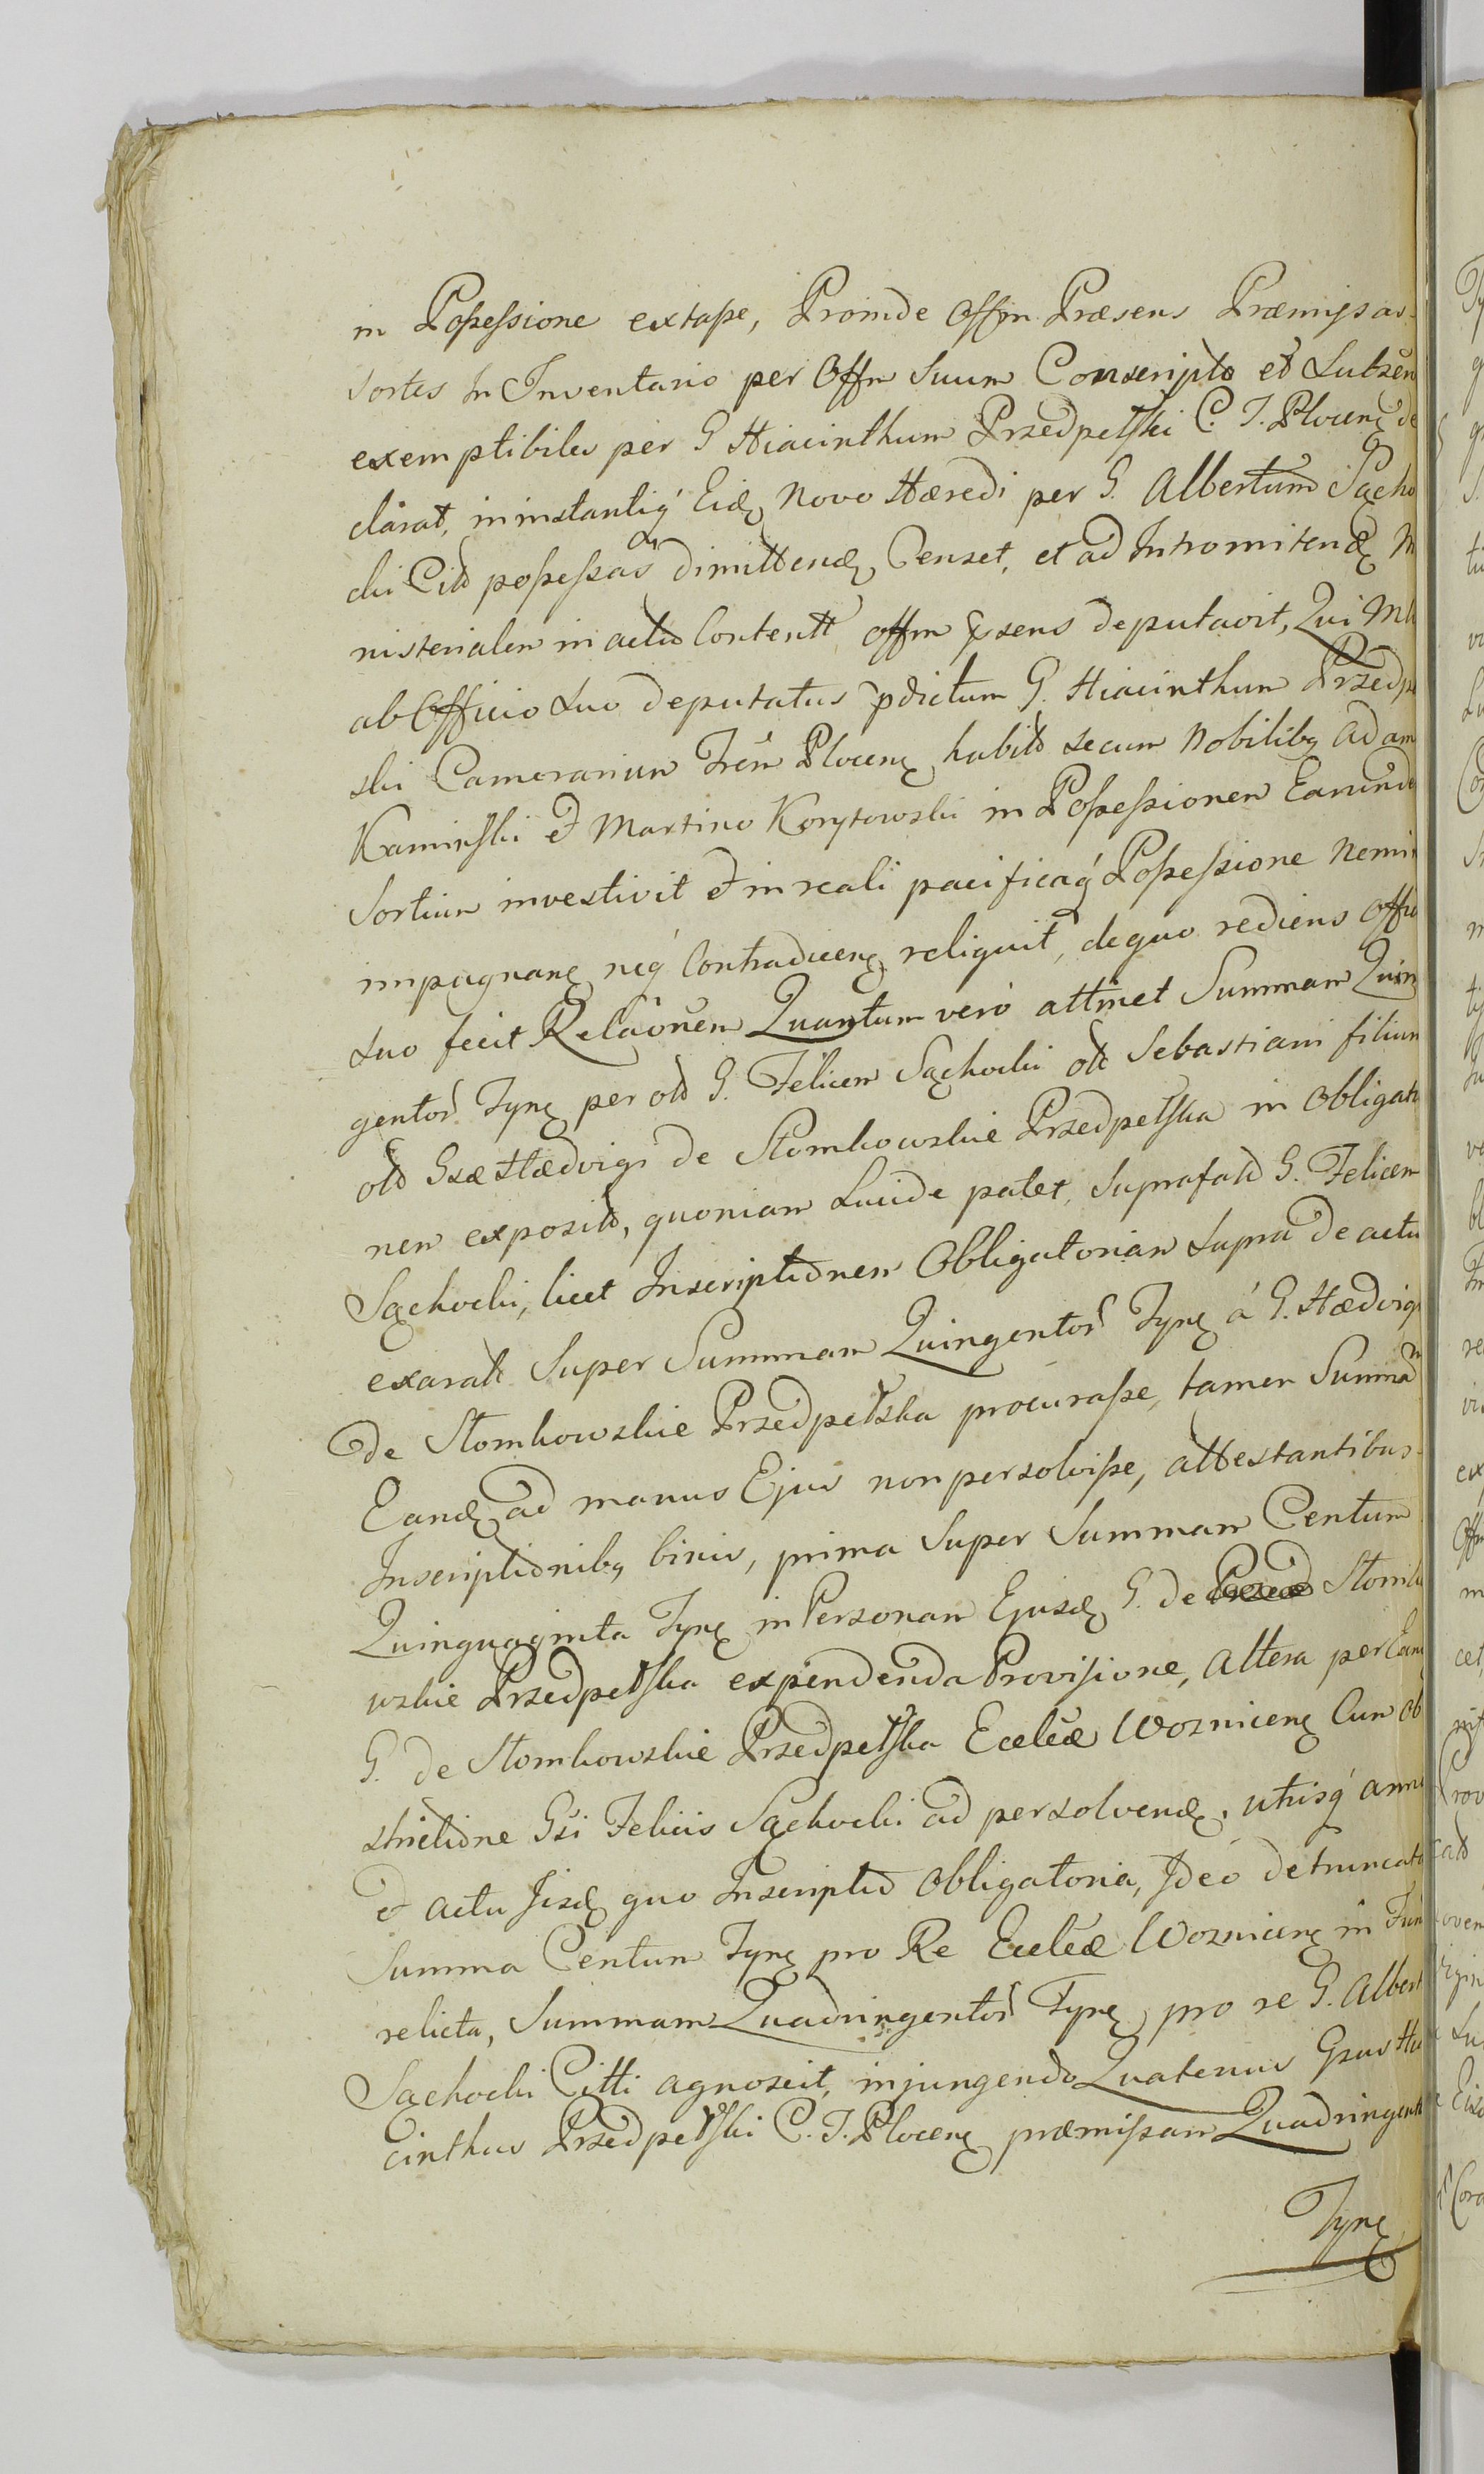 in Possessione extasse, Proinde Offm Præsens Præmissas
sortes In Inventario per Offm Suum Conscripto et Lutszen
exemptibiles per G Hiacinthum Przedpełski C. T. Plocenę de
clarat, in instantiq́ Eidę Novo Hæredi per G. Albertum Sącho
cki Citō possessas dimittendę Censet, et ad Intromitendę Mi
nisterialem in actis Contentt offm pxsens deputavit, Qui Mli
ab Officio Suo deputatus pdictum G. Hiacinthum Przedpe
ski Camerarium Trēn Plocenę habitō secum Nobilibq Adam
Kamiński et Martino Korytowski in Possessionem Earunde
Sortium investivit et in reali pacificaq́ Possessione Nemi
impugnanę neq́ Contradicenę reliquit, de quo rediens Offio
Suo fecit Relāōnem Quantum verò attinet Summam Quin
gentor̄ Tynę per olō G. Felicem Sąchocki olō Sebastiani filium
olō Gsæ Hædvigi de Słomkowskie Przedpełska in Obligatō
nem expositō, quoniam Lucide patet, Suprafatō G. Felicem
Sąchocki, licet Inscriptiōnem Obligatoriam Supra de actu
exaratō Super Summam Quingentor̄ Tynę á G. Hædvigi
de Słomkowskie Przedpełska procurasse, tamen Summā
Eandę ad manus Ejus non persolvisse, attestantibus
Inscriptiōnibq binis, prima Super Summam Centum
Quinquaginta Tynę in Personam Ejusdę G. de Słomko
wskie Przedpełska expendenda Provisione, Altera per Eandę
G. de Słomkowskie Przedpełska Eccleæ Wozniccenę Cum ob
strictiōne Gsi Felicis Sąchocki ad persolvendę, utrisq́ anno
et actu Iisdę quo Inscriptiō Obligatoria, Ideò detruncatō
Summa Centum Tynę pro Re Eccleæ Wozniccenę in Fun
relicta, Summam Quadringentor̄ Tynę pro re G. Albert
Sąchocki Citti agnoscit, injungendo Quatenus Gsus Hia
cinthus Przedpełski C. T. Plocenę præmissam Quadringent
Tynę